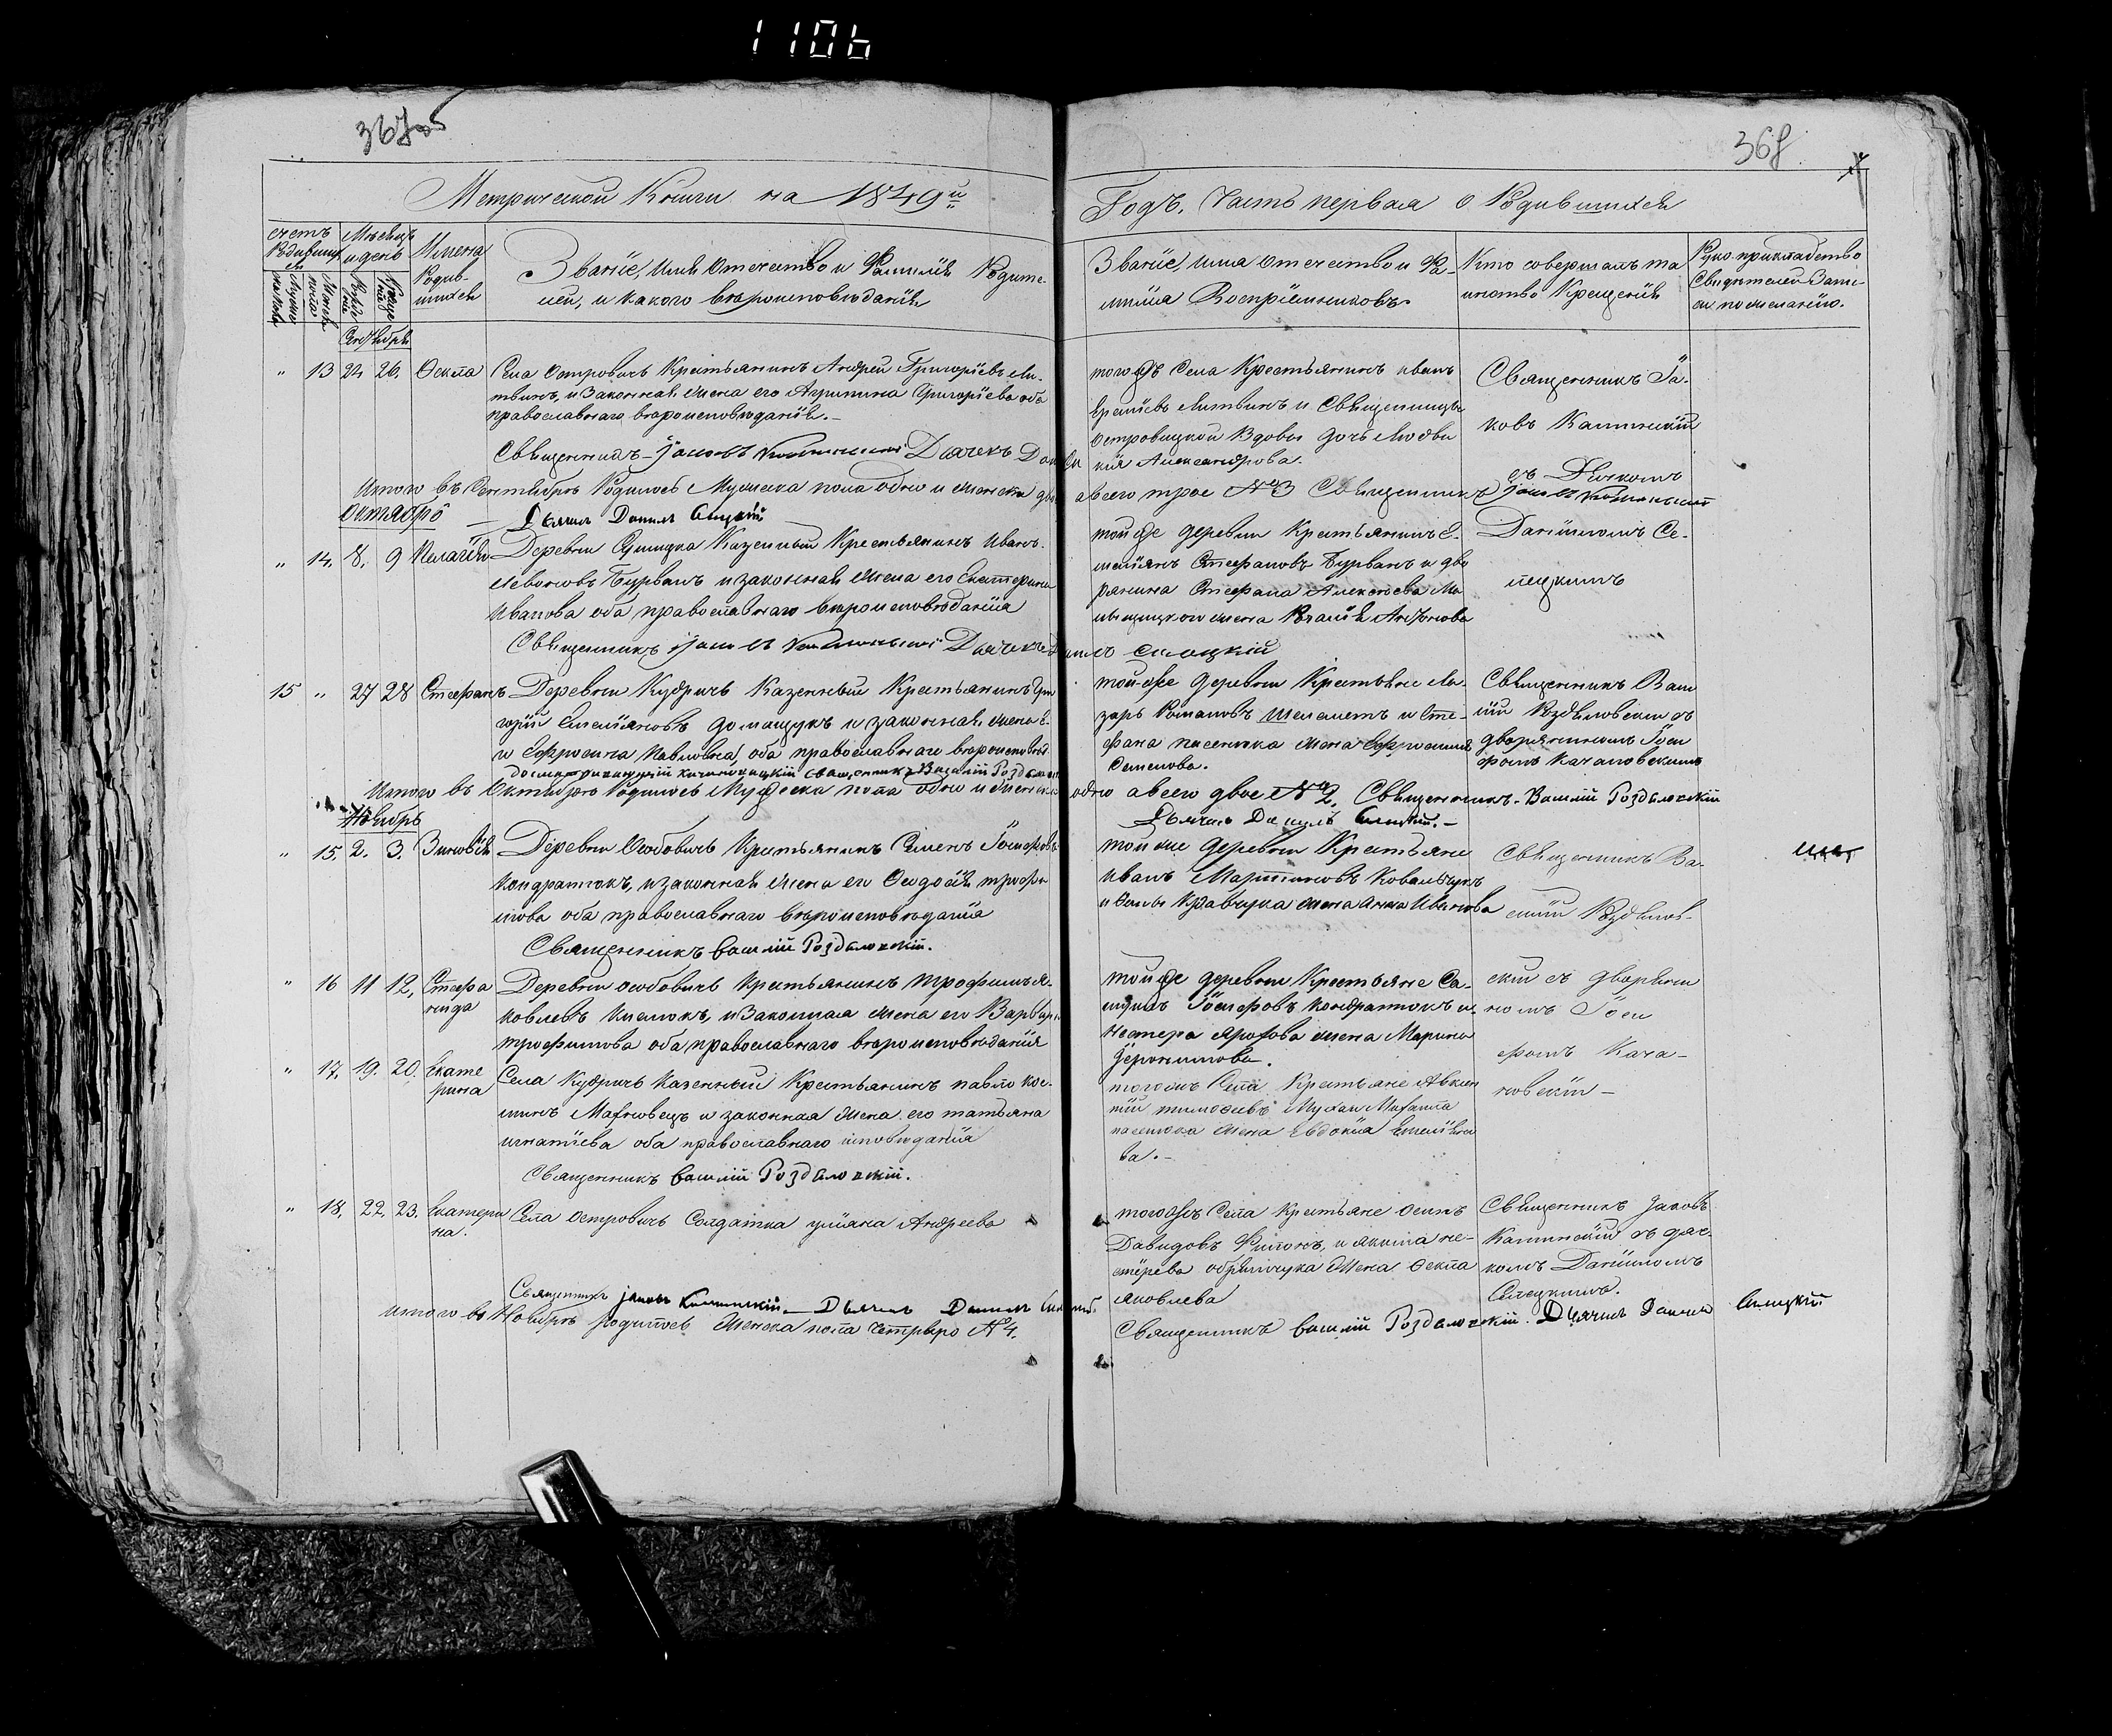 1106
367об
368
Метрической Книги на 1849й
Годъ, Часть первая о Родившихся
счетъ Родившихся
Мужеска пола
Женска пола
Мѣсяцъ и день
Рожденія
Крещенія
Имена Родившихся
Званіе, имя Отечество и Фамилія Родите-
лей, и какого вѣроисповѣданія
Званіе имя отечество и Фа-
милія Воспріемниковъ
Кто совершалъ та
инство Крещенія
Рукоприкладство
Свидѣтелей Запи-
си по желанію.
Сентябрь
" 13 24 26. Ѳекла
Села Островичъ Крестьянинъ Андрей Григоріевъ Ли-
твинъ, и Законная жена его Акрипина Григоріева оба
православнаго вѣроисповѣданія.-
Священникъ - Іаковъ Каминскій Дьячекъ
тогожъ Села Крестьянинъ иванъ
Литвинъ и Священницы
Островицкой Вдовы дочь
Александрова.
Священникъ Іа-
ковъ Каминскій
съ Дьячкомъ
Даніиломъ Се-
лецкимъ
Итого въ Сентябрѣ Родилось Мужеска пола одно и женска два
а всего трое №3 Священникъ Іаковъ Каминскій
Октябрь
Дьячекъ Данилъ Слицкій
" 14. 8. 9 Пелагея
Деревни Казенный Крестьянинъ Иванъ
Бурванъ и законная жена его Екатерина
Иванова оба православнаго вѣроисповѣданія
Священникъ Іаковъ Каминскій Дьячекъ
тойже деревни Крестьянинъ Е-
меліянъ Стефановъ Бурванъ и дво
рянина Стефана Алексѣева
жена
15 " 27 28 Стефанъ
Деревни Кудричъ Казенный Крестьянинъ Гри
горій Емеліяновъ Домащукъ и законная жена е-
го Ефросина Павловна, оба православнаго
священникъ Василій
той-же деревни Крестьяне Ла-
зарь Романовъ Шелометъ и Сте-
фана жена Ефросинія
Семенова.
Священникъ Васи
лій Роздяловскій съ
дворяниномъ Іоси
фомъ Качановскимъ
Итого въ Октябрѣ Родилось Мужеска пола одно и женска
одно а всего двое №2. Священникъ Василій Роздяловскій
Дьячекъ Данилъ Слицкій.-
Ноябрь
" 15. 2. 3. Зиновія
Деревни Особовичъ Крестьянинъ Семенъ Іосифовъ
Кондратюкъ, и законная жена его Ѳеодосія Трофи
мова оба православнаго вѣроисповѣданія
Священникъ Василій Роздяловскій.
той же деревни Крестьяне
Иванъ Мартиновъ Ковальчукъ
и Кравчука жена Анна Иванова
Священникъ Ва-
силій Роздялов-
скій съ дворяни
номъ Іоси
фомъ Кача-
новскій -
" 16 11 12, Стефа
нида
Деревни Особовичъ Крестьянинъ Трофимъ Я-
ковлевъ Климокъ, и Законная жена его Варвара
Трофимова оба православнаго вѣроисповѣданія
тойже деревни Крестьяне Са-
Іосифовъ Кондратюкъ и
Нестера жена Марина
Іеронимова.
" 17. 19. 20. Екате
рина
Села Кудричъ Казенный Крестьянинъ Павло Кос-
минъ Махновецъ и законная жена его Татьяна
Игнатіева оба православнаго исповѣданія
Священникъ Василій Роздяловскій.
тогожъ Села Крестьяне Авксен
тій Тимоѳеевъ Михаила
жена Евдокія Емеліяно
ва.-
" 18. 22. 23. Екатери
на.
Села Островичъ Солдатка уліяна Андреева
тогожъ Села Крестьяне Осипъ
Давидовъ Филонъ, и Акима Не-
стерева жена Ѳекла
Яковлева
Священникъ Іаковъ
Каминскій съ дяч-
комъ Даніиломъ
Слицкимъ.
Священникъ Іаковъ Каминскій.- Дьячекъ Данилъ Слицкій.
Итого въ Ноябрѣ родилось женска пола четверо №4.
Священникъ Василій Роздяловскій. Дьячекъ Данилъ Слицкій